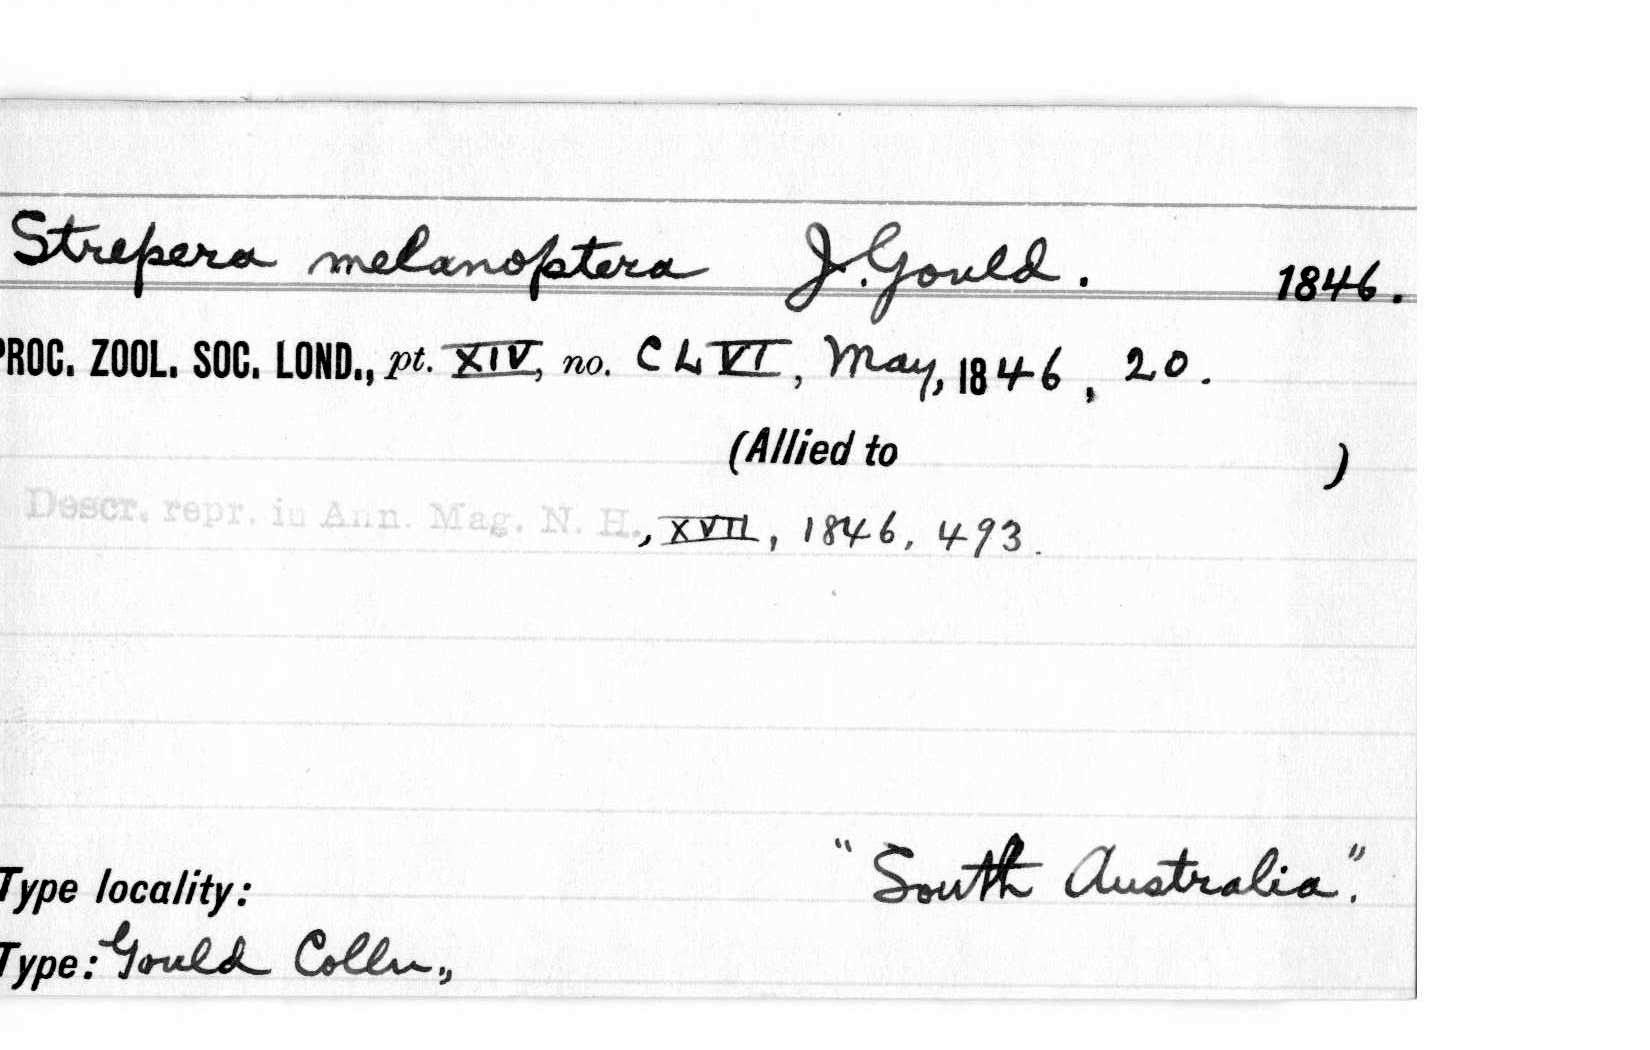 Strepera melanoptera J. Gould. 1846.
PROC. ZOOL. SOC. LOND., pt. XIV, no. CLVI, May, 1846, 20.
(Allied to )
Descr. repr. in Ann. Mag. N. H., XVII, 1846, 493.
Type locality: "South Australia".
Type: Gould Colln.,